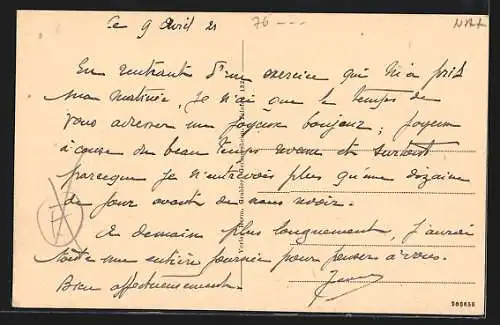 Ce 9 Avril 21
76 ---
En rentrant d'un exercice qui m'a pris
ma matinée, je n'ai que le temps de
vous adresser un joyeux bonjour; joyeux
à cause du beau temps revenu et surtout
parceque je n'entrevois plus qu'une dizaine
de jour avant de nous revoir.
A demain plus longuement, j'aurai
toute une entière journée pour penser à vous.
Bien affectueusement.
500656